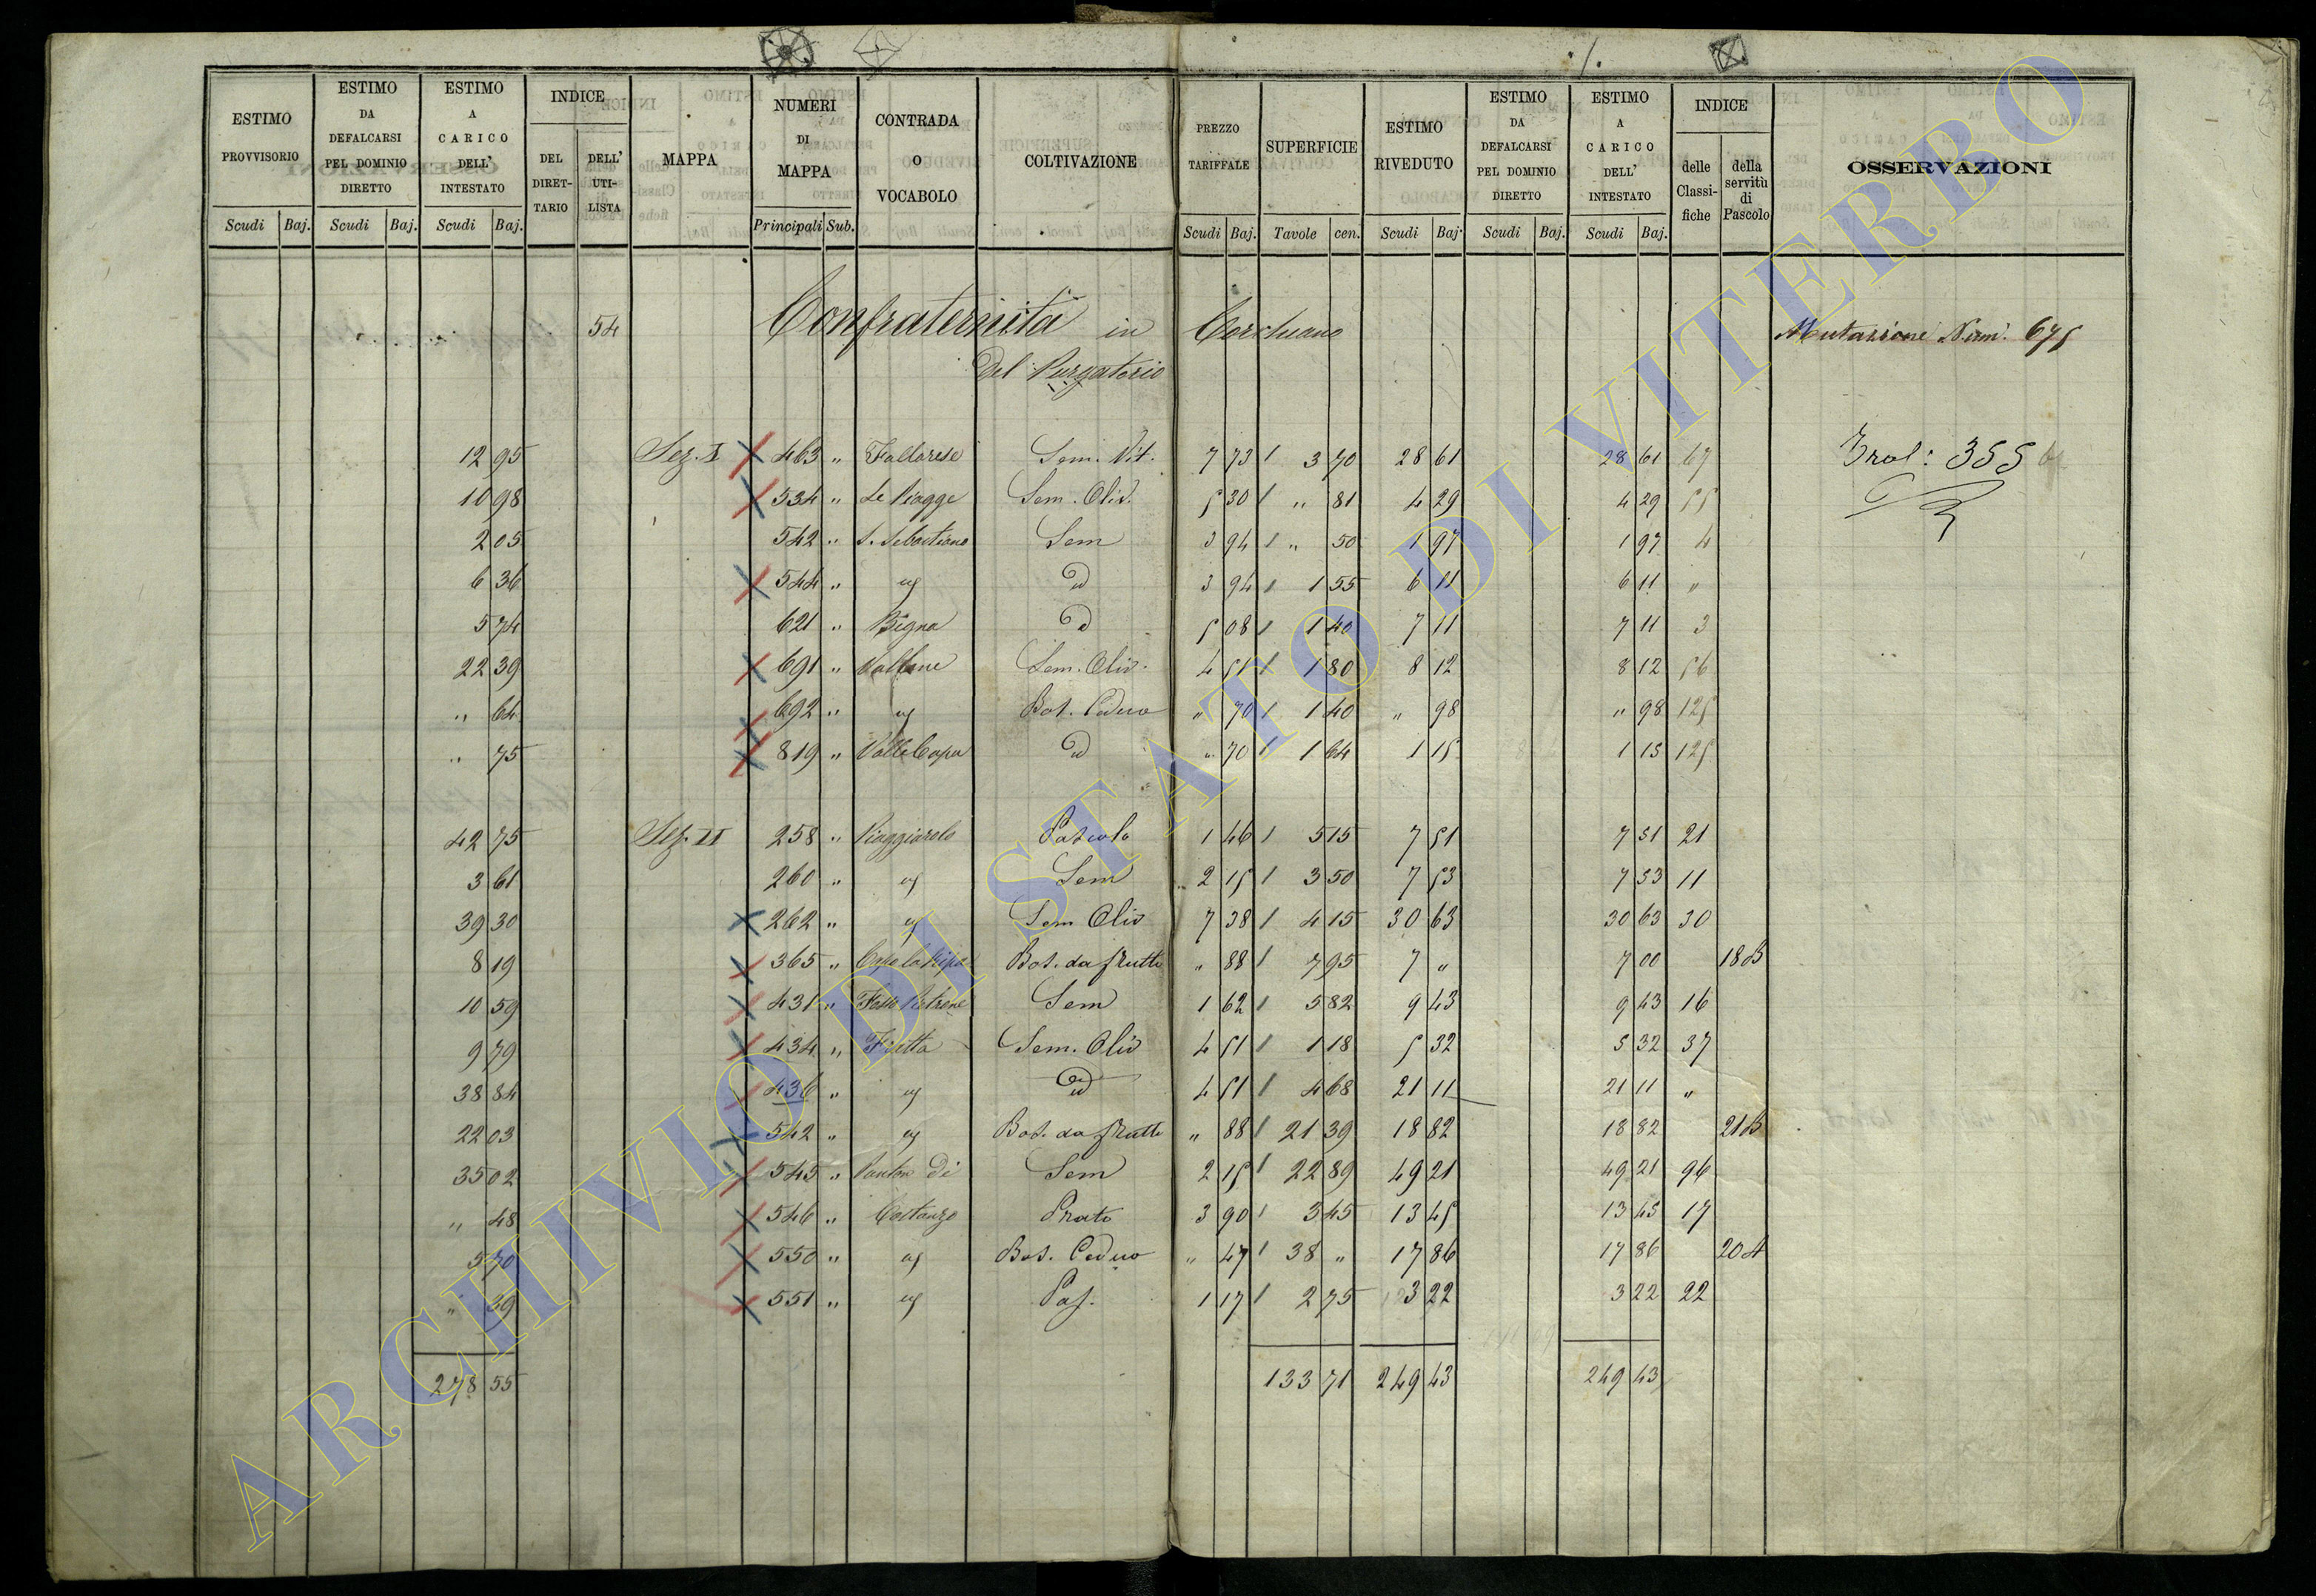 ESTIMO PROVVISORIO
ESTIMO DA DEFALCARSI PEL DOMINIO DIRETTO
ESTIMO A CARICO DELL' INTESTATO
INDICE
DEL DIRET-TARIO
DELL' UTI-LISTA
MAPPA
NUMERI DI MAPPA
CONTRADA O VOCABOLO
COLTIVAZIONE
PREZZO TARIFFALE
SUPERFICIE
ESTIMO RIVEDUTO
ESTIMO DA DEFALCARSI PEL DOMINIO DIRETTO
ESTIMO A CARICO DELL' INTESTATO
INDICE
delle Classi-fiche
della servitù di Pascolo
OSSERVAZIONI
Scudi Baj. Scudi Baj. Scudi Baj. Principali Sub. Scudi Baj. Tavole cen. Scudi Baj. Scudi Baj. Scudi Baj.
54 Confraternita in Corchiano Mutazione Num. 675
Del Purgatorio
12 95 Sez. I 463 " Fallarese Sem. Vit. 7 73 3 70 28 61 28 61 67 355
10 98 534 " Le Piagge Sem. Oliv. 5 30 " 81 4 29 4 29 55
2 05 542 " S. Sebastiano Sem 3 94 " 50 1 97 1 97 4
6 36 544 " id 3 94 1 55 6 11 6 11 "
5 74 621 " 5 08 1 40 7 11 7 11 3
22 39 691 " Vallone Sem. Oliv. 4 51 1 80 8 12 8 12 56
" 64 692 " Bos. Ceduo " 70 1 40 " 98 " 98 125
" 75 819 " id " 70 1 64 1 15 1 15 125
42 75 Sez. II 258 " Piaggiarole Pascolo 1 46 5 15 7 51 7 51 21
3 61 260 " Sem 2 15 3 50 7 53 7 53 11
39 30 262 " Sem Oliv 7 38 4 15 30 63 30 63 30
8 19 365 " Bos. da frutto " 88 7 95 7 " 7 00 18 B
10 59 431 " Sem 1 62 5 82 9 43 9 43 16
9 79 434 " Sem. Oliv 4 51 1 18 5 32 5 32 37
38 84 436 " id 4 51 4 68 21 11 21 11 "
22 03 542 " Bos. da frutto " 88 21 39 18 82 18 82 21 B
35 02 545 " Di Sem 2 15 22 89 49 21 49 21 96
" 48 546 " Costanzo Prato 3 90 3 45 13 45 13 45 17
5 70 550 " Bos. Ceduo " 47 38 " 17 86 17 86 20 A
" 59 551 " Pas. 1 17 2 75 3 22 3 22 22
278 55 133 71 249 43 249 43
ARCHIVIO DI STATO DI VITERBO